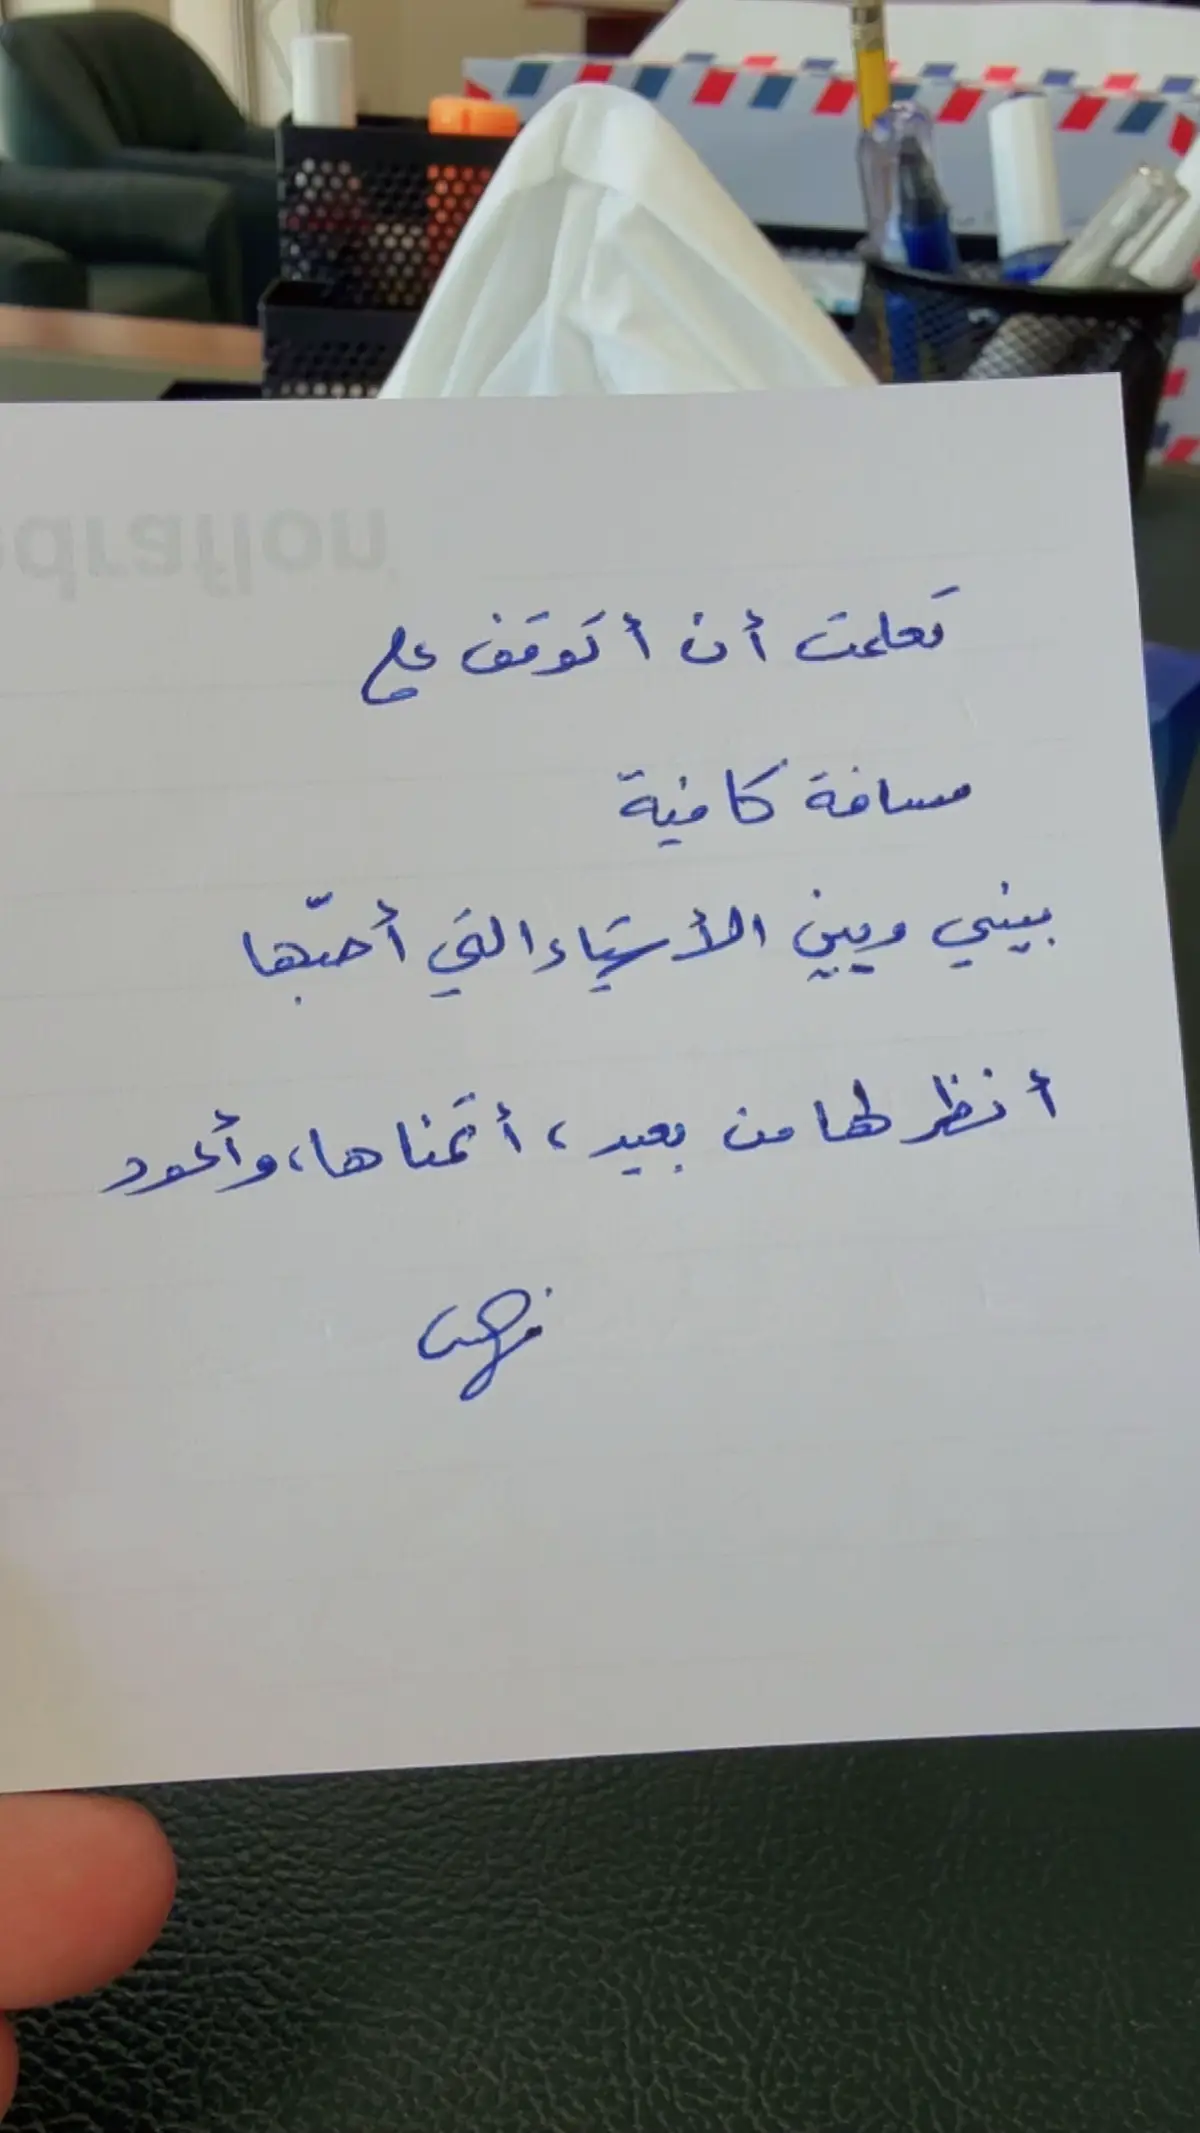 تعلمت أن أتوقف على
مسافة كافية
بيني وبين الأشياء التي أحبّها
أنظر لها من بعيد، أتمناها، وأعود